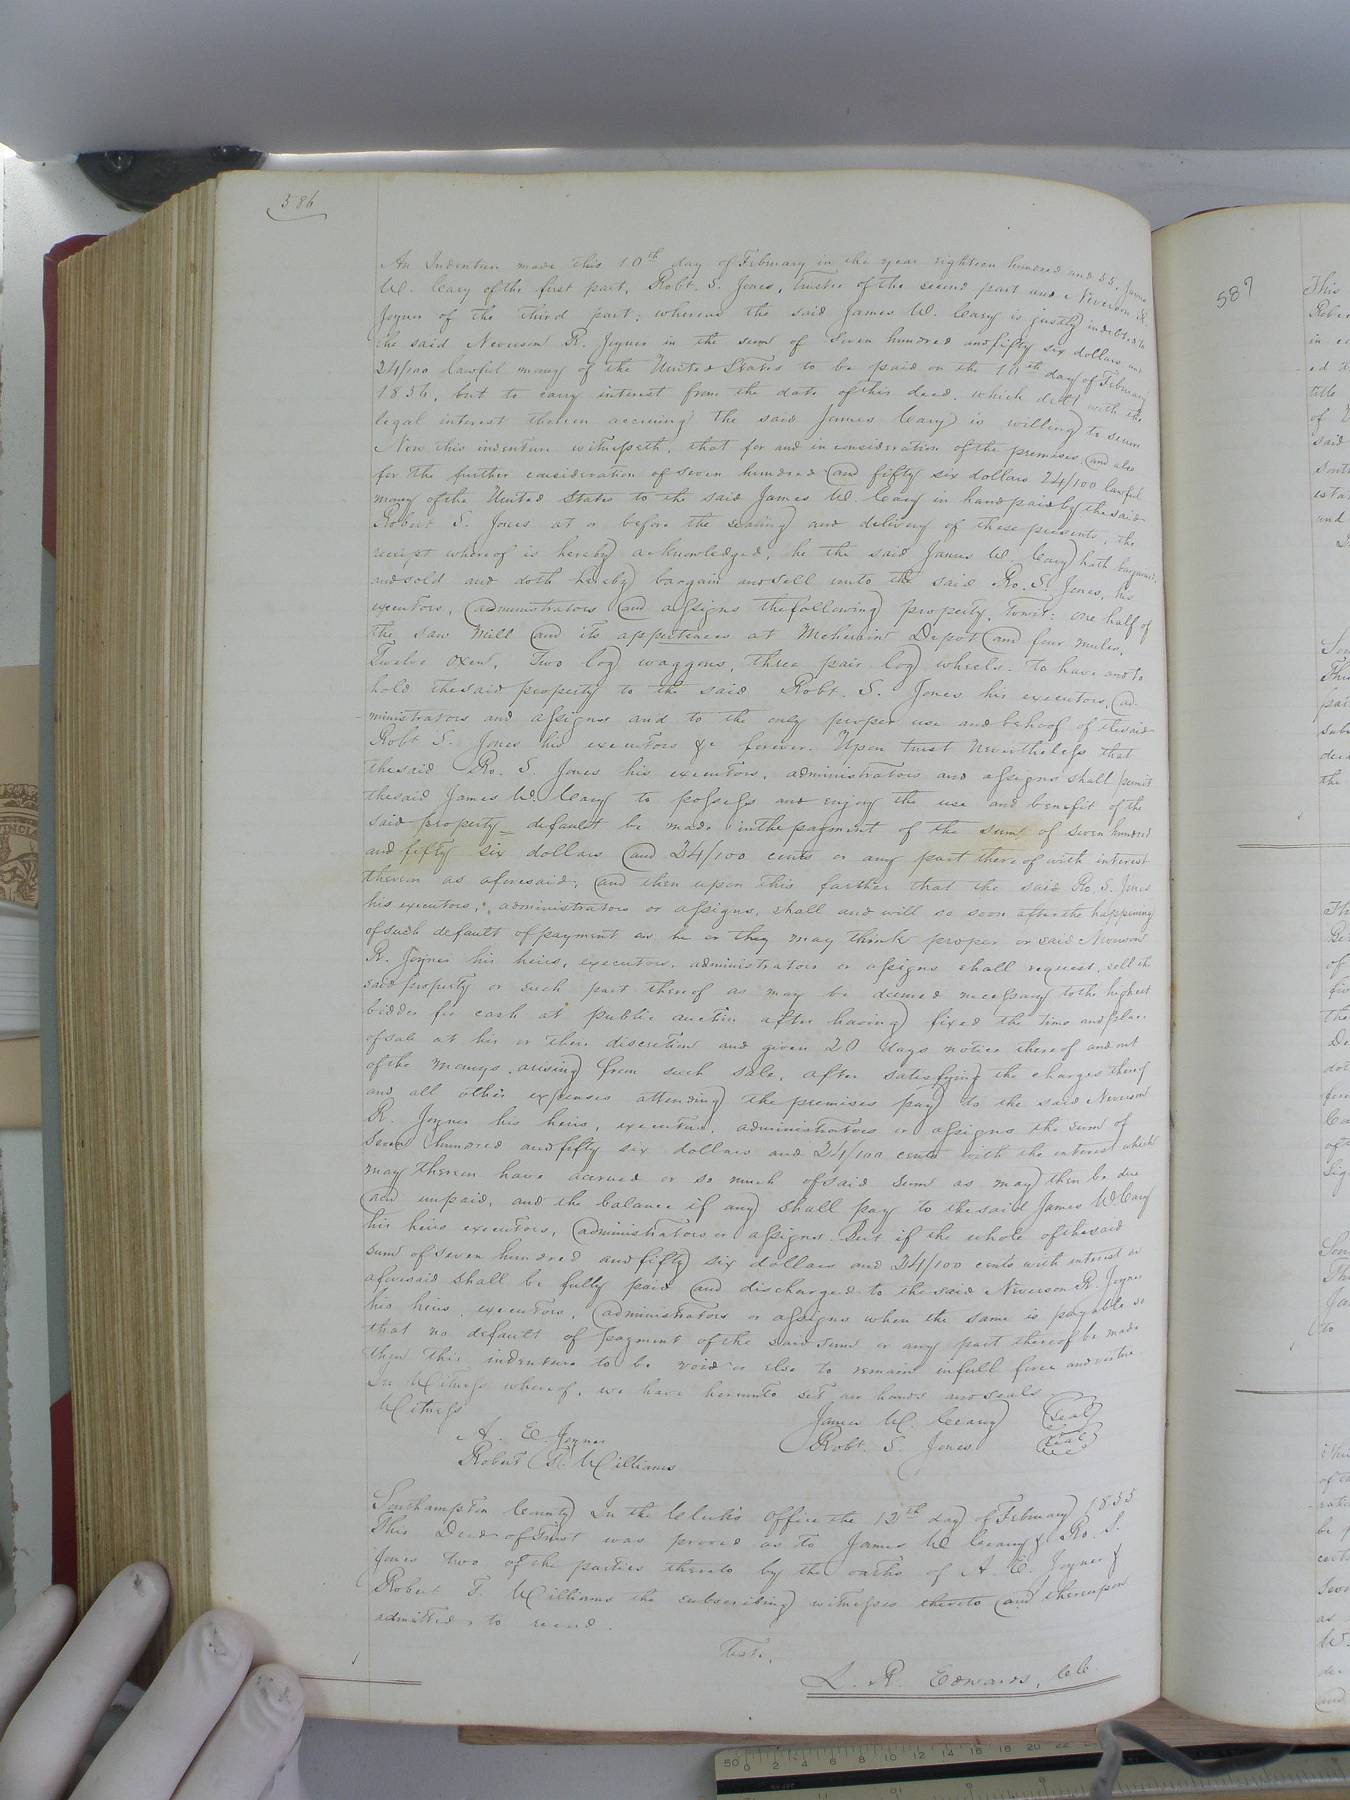 586
An Indenture made this 10th day of February in the year eighteen hundred and 55, James
W. Cary of the first part, Robt. S. Jones, trustee of the second part and Neverson R.
Joyner of the third part; whereas the said James W. Cary is justly indebted to
the said Neverson R. Joyner in the sum of Seven hundred and fifty six dollars and
24/100 lawful money of the United States to be paid on the 10th day of February
1856, but to carry interest from the date of this deed, which debt with the
legal interest thereon accruing the said James Cary is willing to secure
Now this indenture witnesseth, that for and in consideration of the premises, and also
for the further consideration of seven hundred and fifty six dollars 24/100 lawful
money of the United States to the said James W. Cary in hand paid by the said
Robert S. Jones at or before the sealing and delivery of these presents, the
receipt whereof is hereby acknowledged, he the said James W. Cary hath bargained
and sold and doth hereby bargain and sell unto the said Ro. S. Jones, his
executors, administrators and assigns the following property, towit: one half of
the saw mill and its appertences at Meherrin Depot and four mules,
Twelve oxen, Two log waggons, three pair log wheels. To have and to
hold the said property to the said Robt. S. Jones his executors, ad-
ministrators and assigns and to the only proper use and behoof of the said
Robt S. Jones his executors &c forever. Upon trust nevertheless that
the said Ro. S. Jones his executors, administrators and assigns shall permit
the said James W. Cary to possess and enjoy the use and benefit of the
said property_ default be made in the payment of the sum of seven hundred
and fifty six dollars and 24/100 cents or any part thereof with interest
thereon as aforesaid, and then upon this farther that the said Ro. S. Jones
his executors, administrators or assigns, shall and will so soon after the happening
of such default of payment as he or they may think proper or said Neverson
R. Joyner his heirs, executors, administrators or assigns shall request, sell the
said property or such part thereof as may be deemed necessary to the highest
bidder for cash at public auction after having fixed the time and place
of sale at his or their discretion and given 20 days notice thereof and out
of the moneys arising from such sale, after satisfying the charges thereof
and all other expenses attending the premises pay to the said Neverson
R. Joyner his heirs, executors, administrators or assigns the sum of
Seven hundred and fifty six dollars and 24/100 cents with the interest which
may thereon have accrued or so much of said sum as may then be due
and unpaid, and the balance if any shall pay to the said James W. Cary
his heirs executors, administrators or assigns. But if the whole of the said
sum of seven hundred and fifty six dollars and 24/100 cents with interest as
aforesaid shall be fully paid and discharged to the said Neverson R. Joyner
his heirs, executors, administrators or assigns when the same is payable so
that no default of payment of the said sum or any part thereof be made
then this indenture to be void or else to remain in full force and virtue.
In Witness whereof, we have hereunto set our hands and seals
Witness
James W. Ceary Seal
A. E. Joyner
Robt. S. Jones Seal
Robert T. Williams
Southampton County In the Clerk's Office the 12th day of February 1855
This Deed of Trust was proved as to James W Ceary & Ro. S.
Jones two of the parties thereto by the oaths of A. E. Joyner &
Robert T. Williams the subscribing witnesses thereto and thereupon
admitted to record.
Teste,
L. R. Edwards, C.C.
587
This
in
title
said
and
the
of
to
50 0 2 4 6 8 10 12 14 16 18 20 22